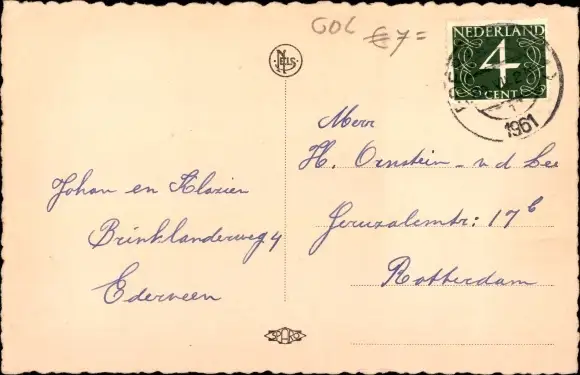 GOL
€ 7 =
NEDERLAND
4
CENT
1961
NELS
Johan en Klazien
Brinklanderweg 4
Ederveen
Merr
H. Ornstein - v d Lee
Jeruzalemstr: 17 b
Rotterdam